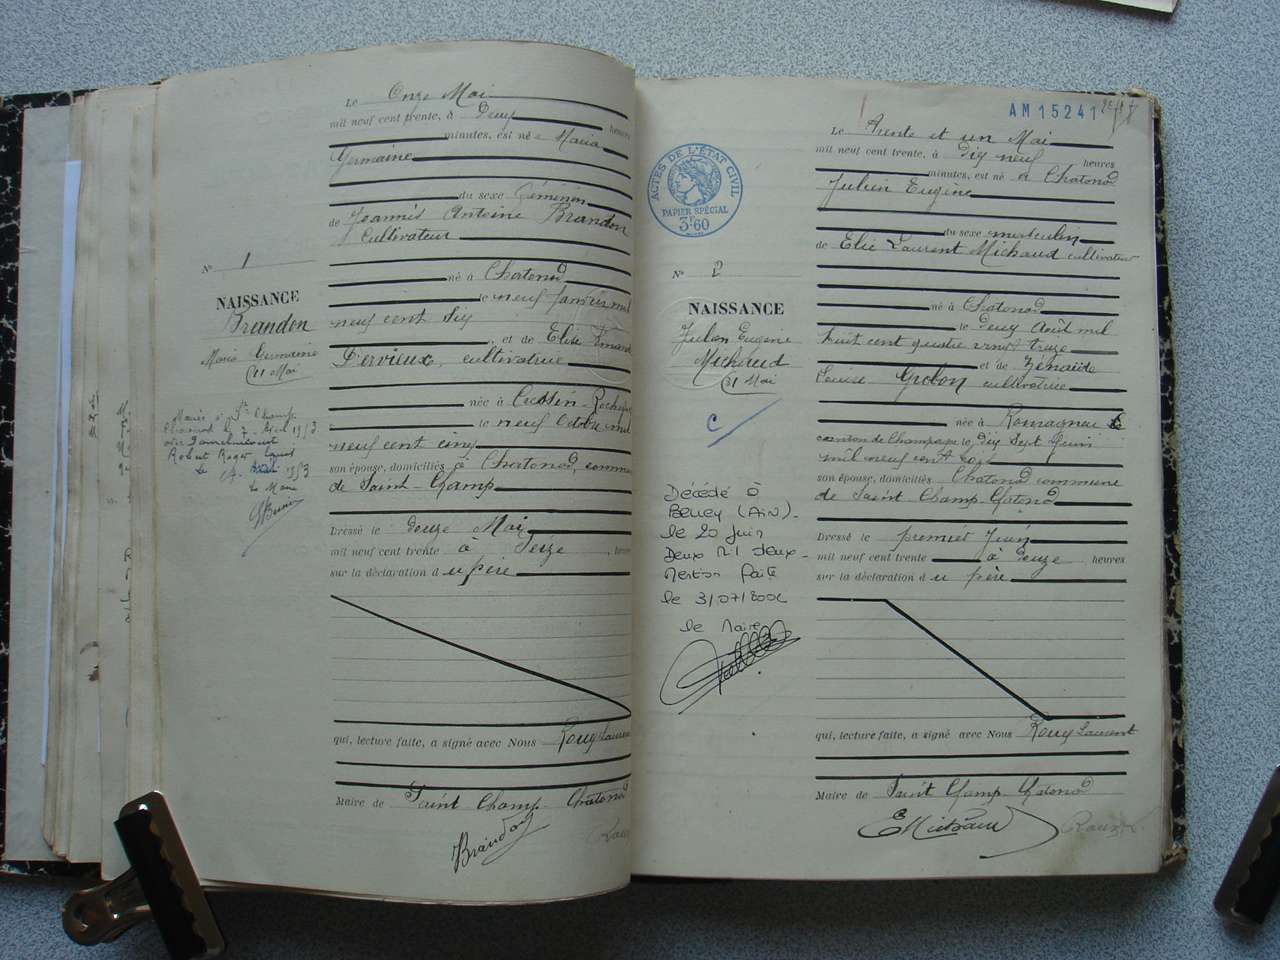 Le Onze Mai
mil neuf cent trente, à Deux heures
minutes, est né e Maria
Germaine
du sexe Féminin
de Joannès Antoine Brandon
cultivateur
né à Chatonod
le neuf janvier mil
neuf cent six
et de Elise
Dervieux, cultivatrice
née à Cressin-Rochefort
le neuf Octobre mil
neuf cent cinq
son épouse, domiciliés à Chatonod, commune
de Saint-Champ
Dressé le douze Mai
mil neuf cent trente à Seize heures
sur la déclaration d u père
qui, lecture faite, a signé avec Nous Roux Laurent
Maire de Saint Champ-Chatonod
Brandon
Roux
N° 1
NAISSANCE
Brandon
Maria Germaine
11 Mai
Mariée à St Champ
Chatonod le 7
avec
Robert Roger
Le Maire
AM 15241
ACTES DE L'ÉTAT CIVIL
PAPIER SPÉCIAL
3F60
Le Trente et un Mai
mil neuf cent trente, à Dix neuf heures
minutes, est né à Chatonod
Julien Eugène
du sexe masculin
de Elie Laurent Michaud cultivateur
né à Chatonod
le deux Août mil
huit cent quatre vingt treize
et de Zénaïde
Louise Grolon cultivatrice
née à Romagnieu
canton de Champagne le Dix Sept Juin
mil neuf cent
son épouse, domiciliés Chatonod commune
de Saint Champ Chatonod
Dressé le premier Juin
mil neuf cent trente à douze heures
sur la déclaration d u père
qui, lecture faite, a signé avec Nous Roux Laurent
Maire de Saint Champ Chatonod
EMichaud
Roux L.
N° 2
NAISSANCE
Julien Eugène
Michaud
31 Mai
C
Décédé à
Belley (Ain)
le 20 juin
Deux mil deux
Mention faite
le 3/07/2002
le Maire